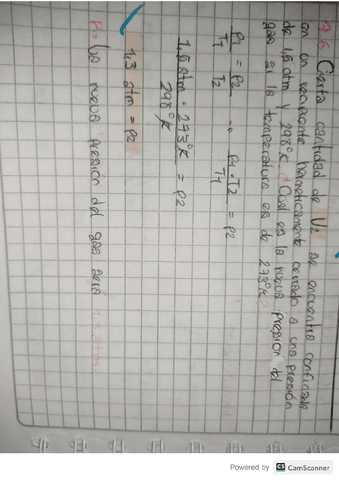 7.6 Cierta cantidad de N2 se encuentra confinada
en un recipiente hermeticamente cerrado a una presión
de 1,5 atm y 298°K. ¿Cual es la nueva presión del
gas si la temperatura es de 273°K?
P1/T1 = P2/T2 -o P1 · T2/T1 = P2
1,5 atm · 273°K / 298°K = P2
1,3 atm = P2
R= La nueva presión del gas será 1,3 atm
Powered by CS CamScanner